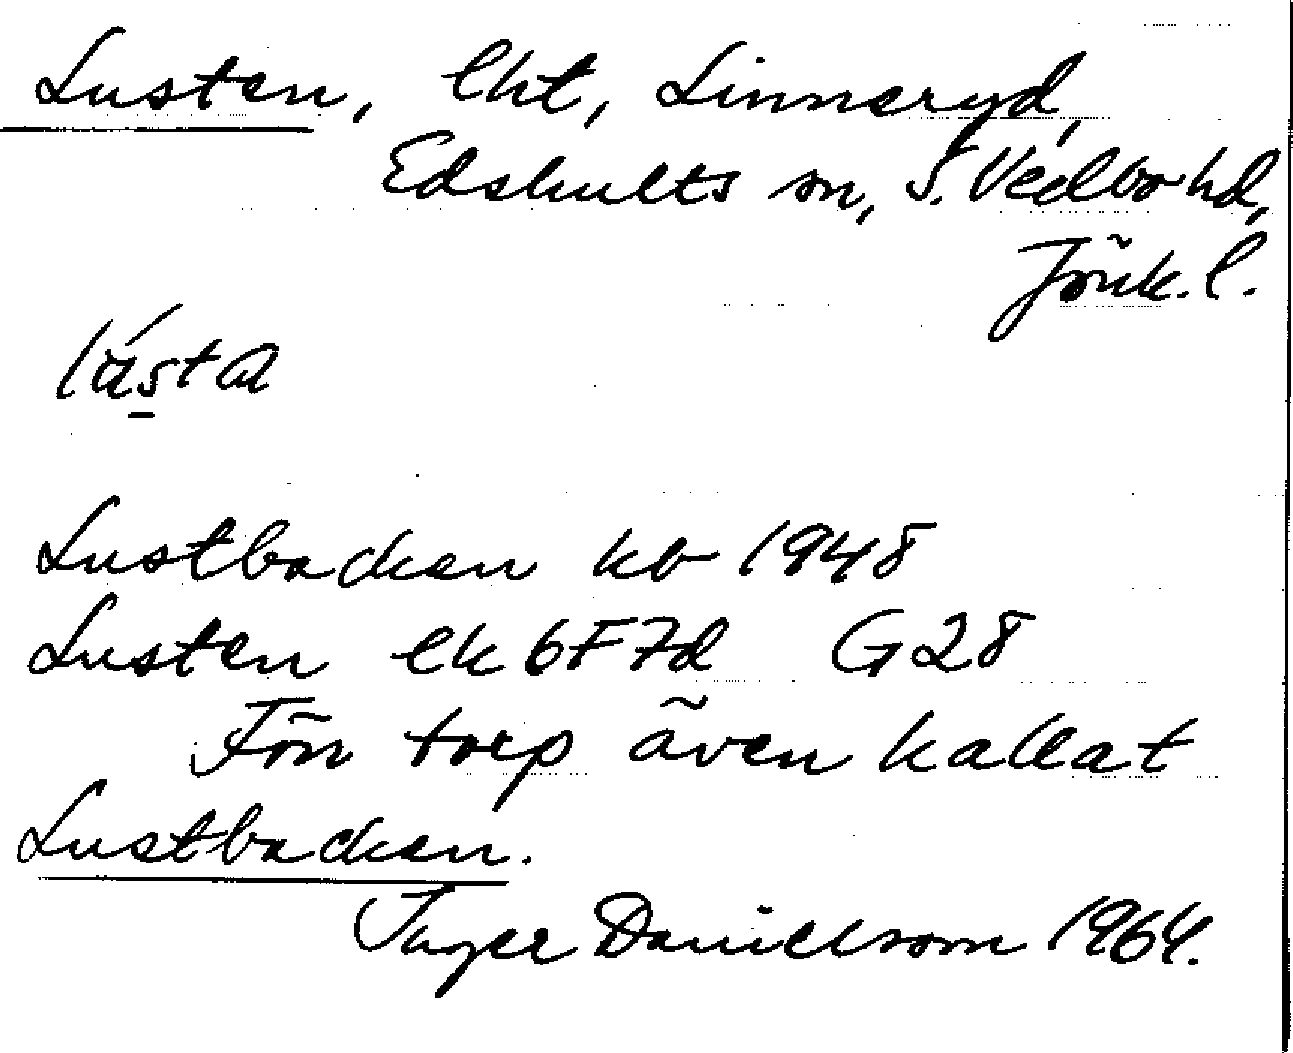 Lusten, lht, Linneryd,
Edshults sn, S. Vedbo hd,
Jönk. l.
Lustbacken kb 1948
Lusten ek 6F7d G28
Förr torp även kallat
Lustbacken.
Inger Danielsson 1964.